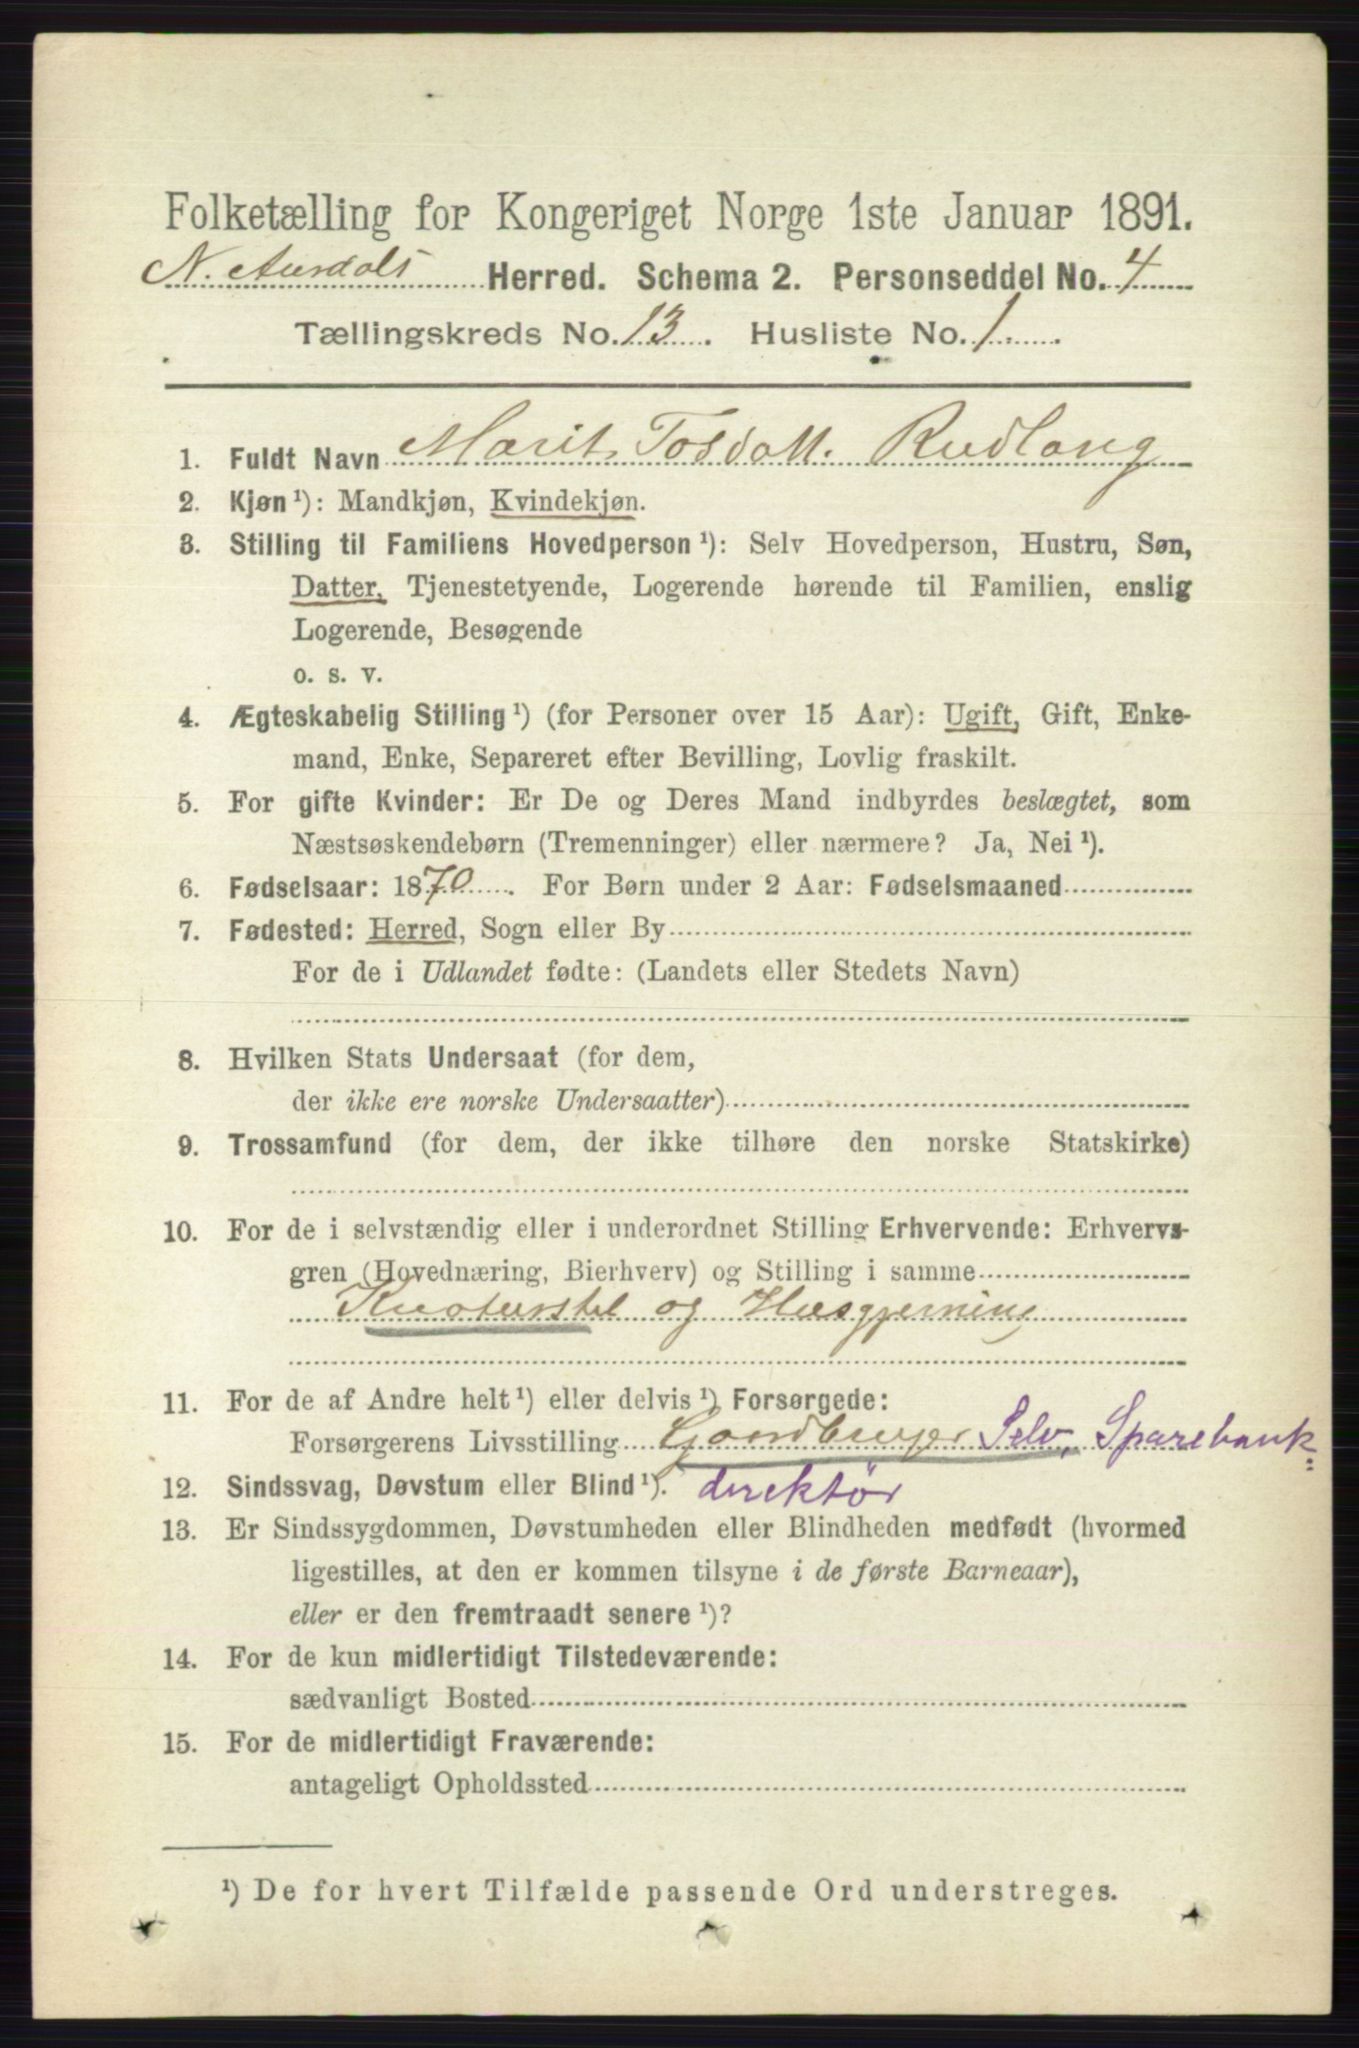 Folketælling for Kongeriget Norge 1ste Januar 1891.
N. Aurdals Herred. Schema 2. Personseddel No. 4
Tællingskreds No. 13. Husliste No. 1.
1. Fuldt Navn Marit Rudlang
2. Kjøn ¹): Mandkjøn, Kvindekjøn.
3. Stilling til Familiens Hovedperson ¹): Selv Hovedperson, Hustru, Søn,
Datter, Tjenestetyende, Logerende hørende til Familien, enslig
Logerende, Besøgende
o. s. v.
4. Ægteskabelig Stilling ¹) (for Personer over 15 Aar): Ugift, Gift, Enke-
mand, Enke, Separeret efter Bevilling, Lovlig fraskilt.
5. For gifte Kvinder: Er De og Deres Mand indbyrdes beslægtet, som
Næstsøskendebørn (Tremenninger) eller nærmere? Ja, Nei ¹).
6. Fødselsaar: 1870. For Børn under 2 Aar: Fødselsmaaned
7. Fødested: Herred, Sogn eller By
For de i Udlandet fødte: (Landets eller Stedets Navn)
8. Hvilken Stats Undersaat (for dem,
der ikke ere norske Undersaatter)
9. Trossamfund (for dem, der ikke tilhøre den norske Statskirke)
10. For de i selvstændig eller i underordnet Stilling Erhvervende: Erhvervs-
gren (Hovednæring, Bierhverv) og Stilling i samme
Kreaturstel og Husgjerning
11. For de af Andre helt ¹) eller delvis ¹) Forsørgede:
Forsørgerens Livsstilling Gaardbruger Selv, Sparebank=
12. Sindssvag, Døvstum eller Blind ¹). direktør
13. Er Sindssygdommen, Døvstumheden eller Blindheden medfødt (hvormed
ligestilles, at den er kommen tilsyne i de første Barneaar),
eller er den fremtraadt senere ¹)?
14. For de kun midlertidigt Tilstedeværende:
sædvanligt Bosted
15. For de midlertidigt Fraværende:
antageligt Opholdssted
¹) De for hvert Tilfælde passende Ord understreges.